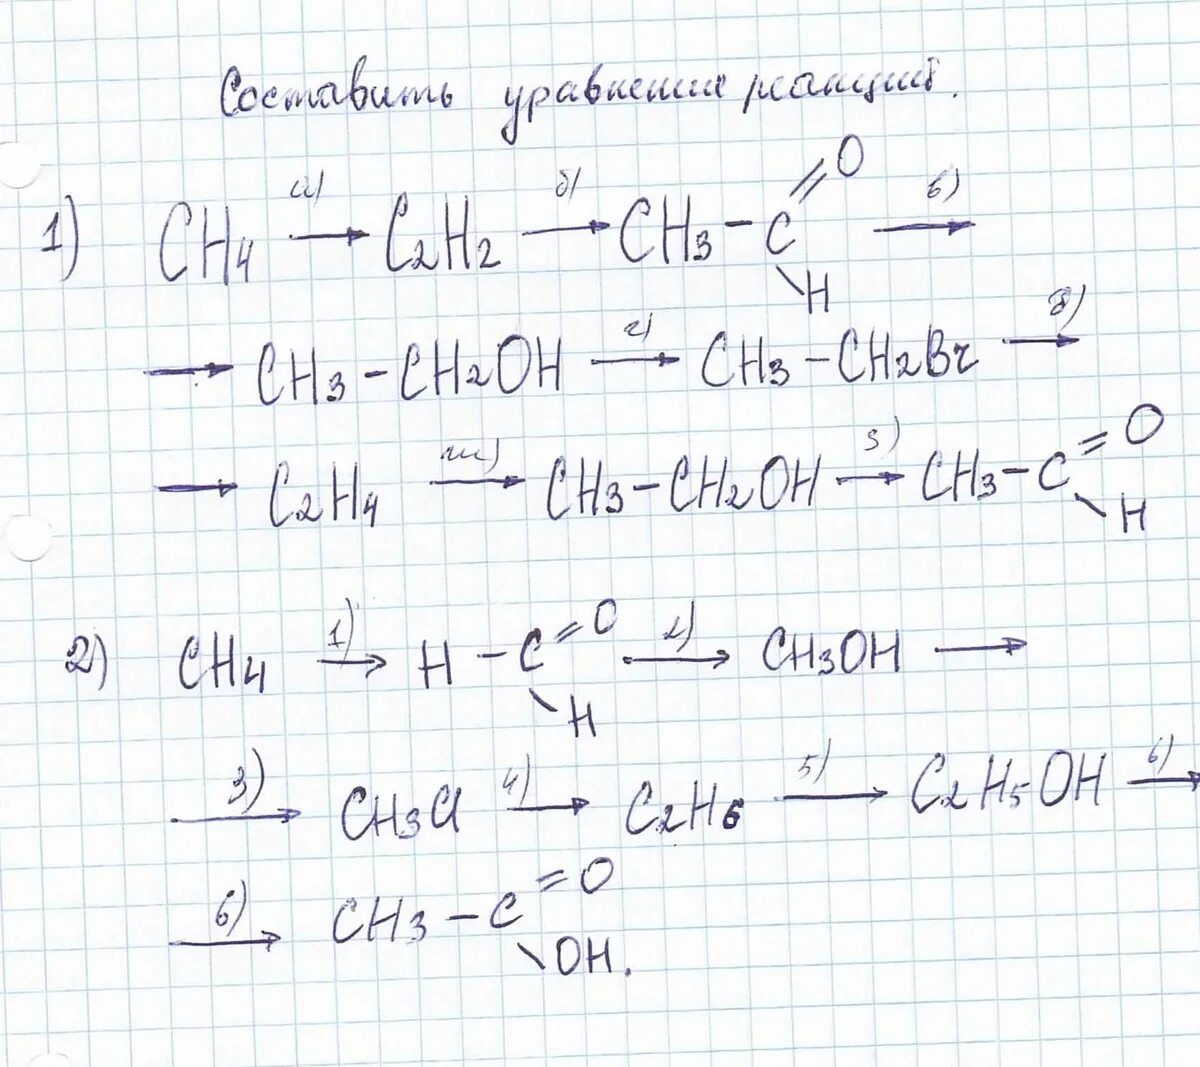 Составить уравнения реакций.
1) CH4 а) → C2H2 б) → CH3 - C =O \H в) →
→ CH3 - CH2OH г) → CH3 - CH2Br д) →
→ C2H4 ж) → CH3 - CH2OH з) → CH3 - C =O \H
2) CH4 1) → H - C =O \H 2) → CH3OH →
3) → CH3Cl 4) → C2H6 5) → C2H5OH 6) →
6) → CH3 - C =O \OH.